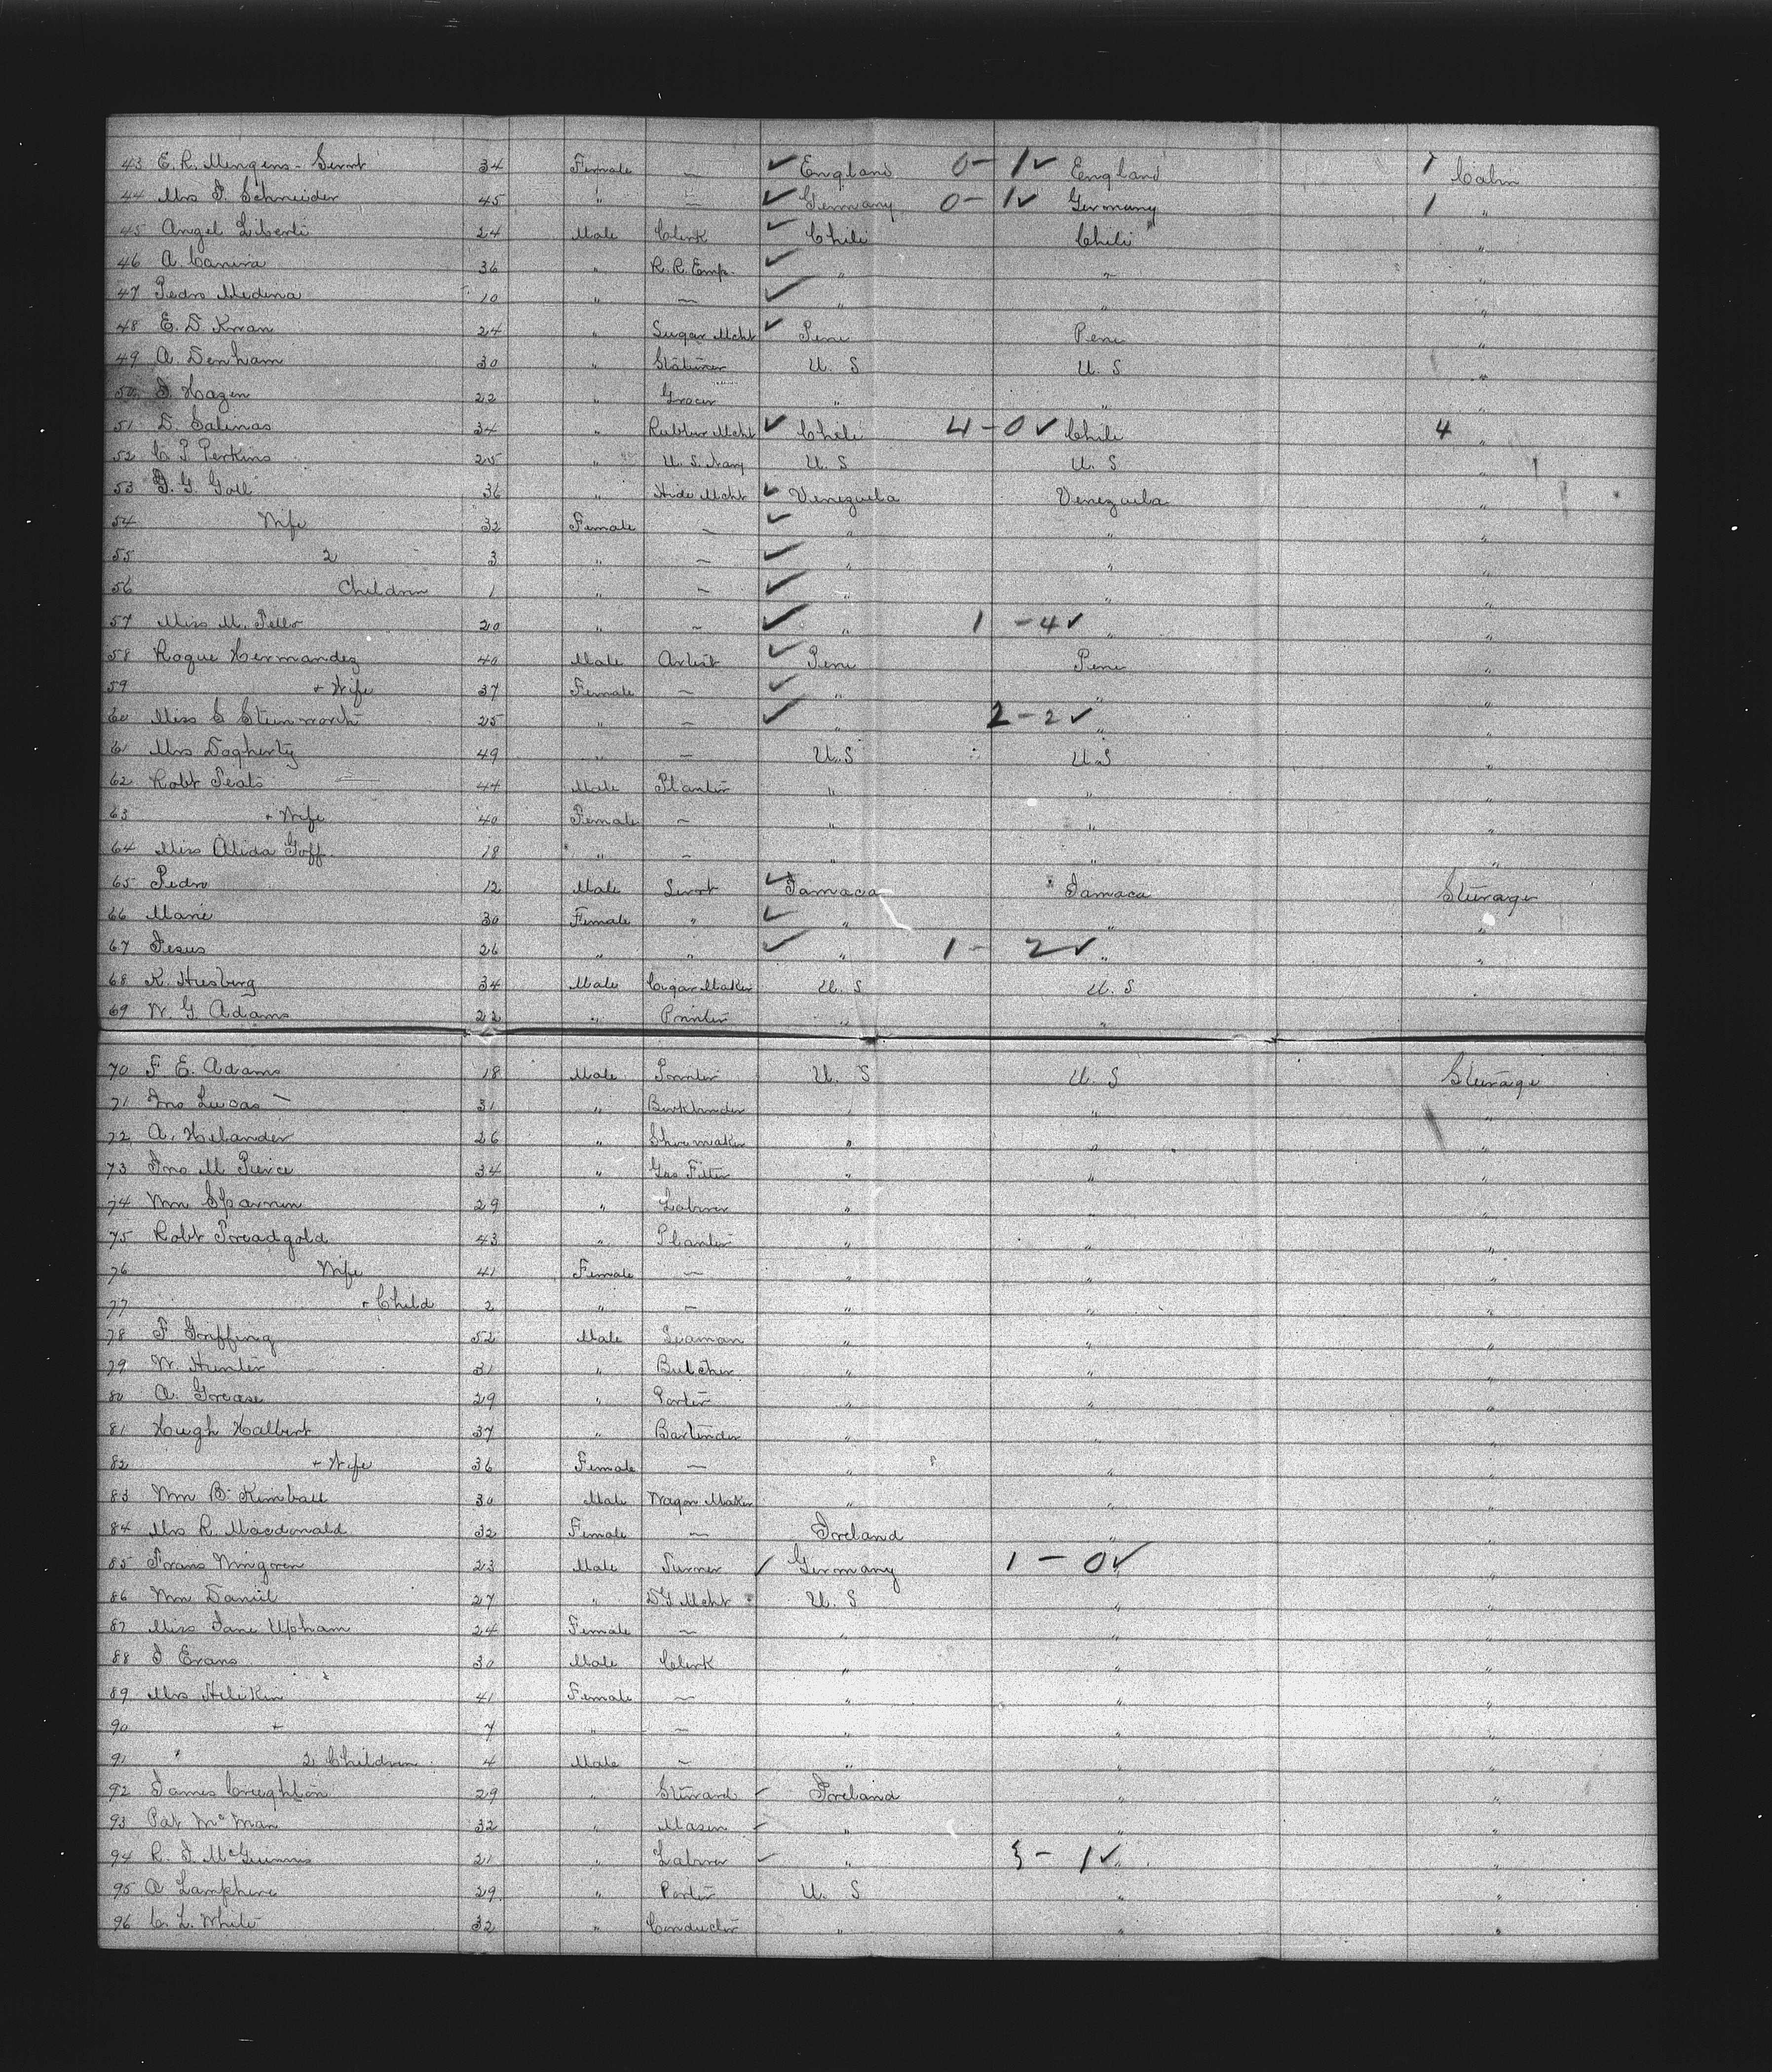 43 E. R. Mengens - Servt 34 Female — ✓ England 0 - 1 ✓ England 1 Cabin
44 Mrs Schneider 45 " — ✓ Germany 0 - 1 ✓ Germany 1 "
45 Angel Liberti 24 Male Clerk ✓ Chili Chili "
46 A. 36 " R. R. Emp. ✓ " " "
47 Pedro Medina 10 " — ✓ " " "
48 E. D. 24 " Sugar Mcht ✓ Peru Peru "
49 A. Denham 30 " U. S U. S "
50 Hagen 22 " Grocer " " "
51 D. Salinas 34 " Rubber Mcht ✓ Chili 4 - 0 ✓ Chili 4 "
52 C. P Perkins 25 " U. S. Navy U. S U. S "
53 G. Goll 36 " Hide Mcht ✓ Venezuela Venezuela "
54 Wife 32 Female — ✓ " " "
55 2 3 " — ✓ " " "
56 Children 1 " — ✓ " " "
57 Miss M. 20 " — ✓ " 1 - 4 ✓ " "
58 Roque Hermandez 40 Male Artist ✓ Peru Peru "
59 + Wife 37 Female — ✓ " " "
60 Miss 25 " — ✓ " 2 - 2 ✓ " "
61 Mrs Dogherty 49 " — U. S U. S "
62 Robt Peats 44 Male Planter " " "
63 + Wife 40 Female — " " "
64 Miss Alida Goff 18 " — " " "
65 Pedro 12 Male Servt ✓ Jamaca Jamaca Steerage
66 Marie 30 Female " ✓ " " "
67 Jesus 26 " " ✓ " 1 - 2 ✓ " "
68 K. Husberg 34 Male Cigar Maker U. S U. S "
69 W. G. Adams 22 " Printer " " "
70 F. E. Adams 18 Male Printer U. S U. S Steerage
71 Jno Lucas — 31 " " " "
72 A. Helander 26 " Shoemaker " " "
73 Jno M Pierce 34 " Gas Fitter " " "
74 Wm 29 " Laborer " " "
75 Robt Treadgold 43 " Planter " " "
76 Wife 41 Female — " " "
77 + Child 2 " — " " "
78 F. Griffing 52 Male Seaman " " "
79 W. Hunter 31 " Butcher " " "
80 A. Grease 29 " Porter " " "
81 Hugh Halbert 37 " Bartender " " "
82 + Wife 36 Female — " " "
83 Wm B. Kimball 30 Male Wagon Maker " " "
84 Mrs R. Macdonald 32 Female — Ireland " "
85 Frans Wingren 23 Male Turner ✓ Germany 1 - 0 ✓ " "
86 Wm Daniel 27 " D G Mcht U. S " "
87 Miss Jane Upham 24 Female — " " "
88 J Evans 30 Male Clerk " " "
89 Mrs 41 Female — " " "
90 + 7 " — " " "
91 " 2 Children 4 Male — " " "
92 James Creighton 29 " Steward ✓ Ireland " "
93 Pat McMan 32 " Mason ✓ " " "
94 R. J. McGuinns 21 " Laborer ✓ " 3 - 1 ✓ " "
95 A Lamphere 29 " Porter U. S " "
96 C. L. White 32 " Conductor " " "